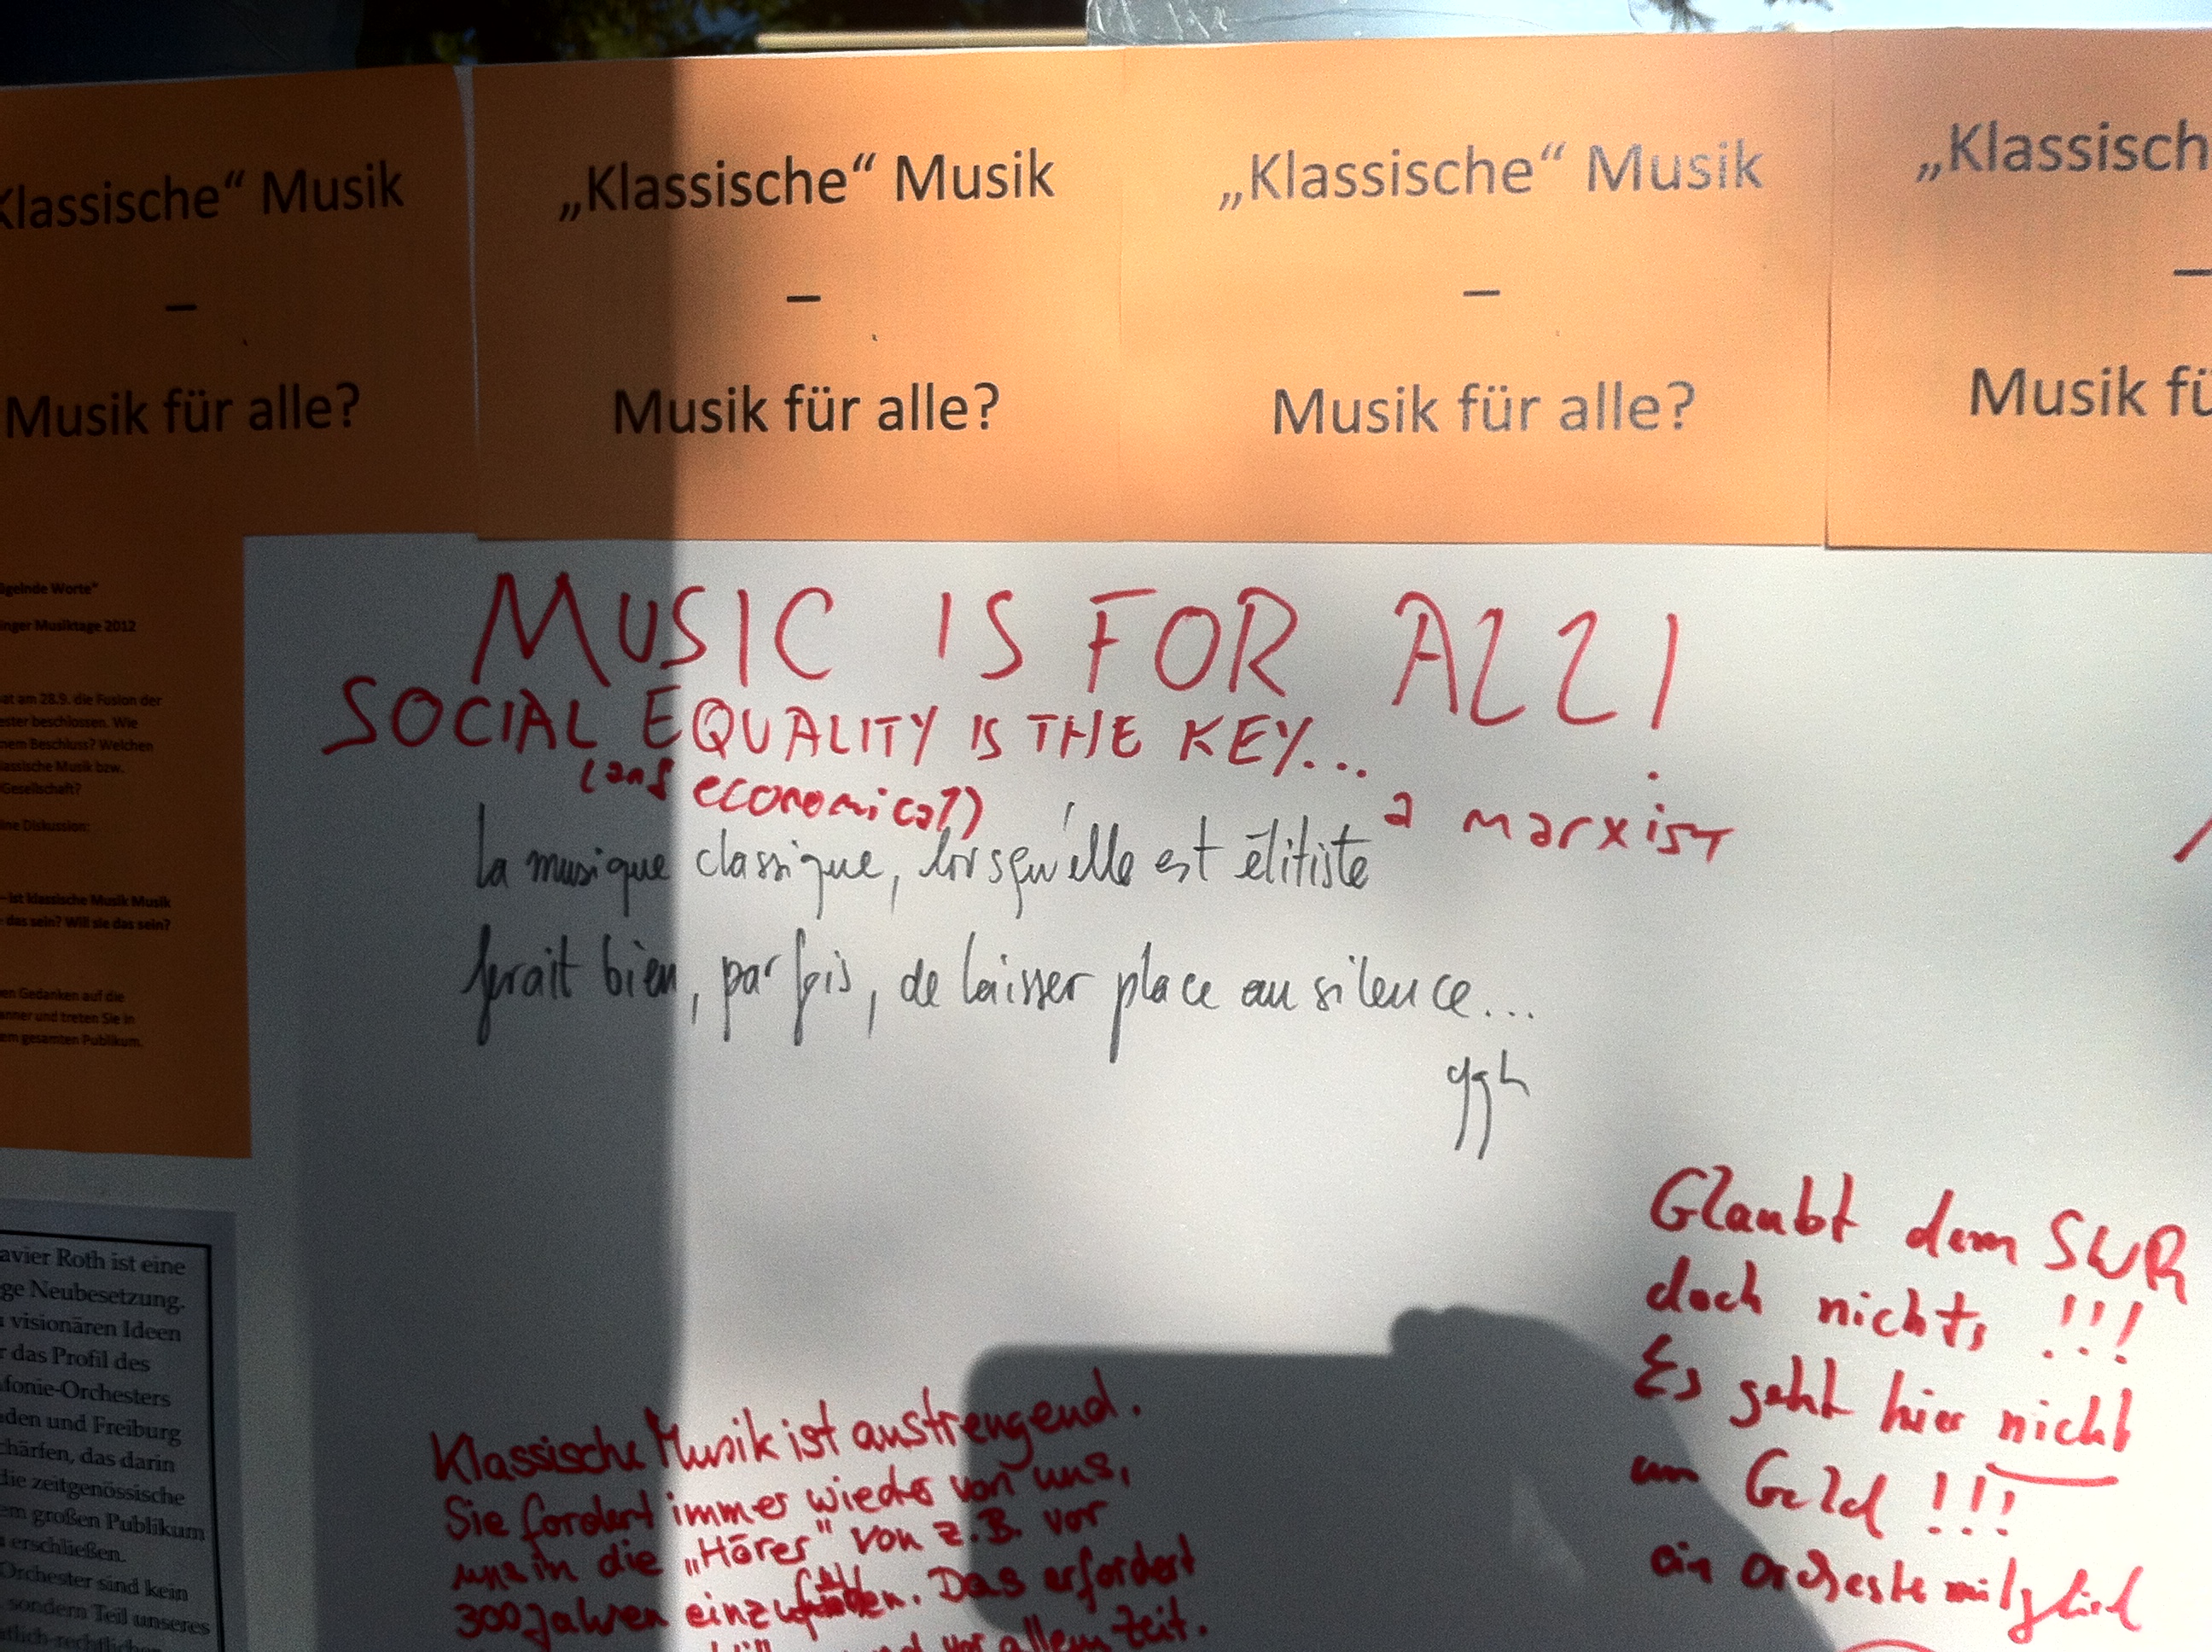 Klassische“ Musik
–
Musik für alle?
„Klassische“ Musik
–
Musik für alle?
„Klassische“ Musik
–
Musik für alle?
„Klassisch
–
Musik fü
ägelnde Worte“
inger Musiktage 2012
at am 28.9. die Fusion der
ester beschlossen. Wie
nem Beschluss? Welchen
lassische Musik bzw.
Gesellschaft?
ine Diskussion:
– ist klassische Musik Musik
das sein? Will sie das sein?
en Gedanken auf die
anner und treten Sie in
em gesamten Publikum.
MUSIC IS FOR ALL!
SOCIAL EQUALITY IS THE KEY...
(and economical)
a marxist
la musique classique, lorsqu'elle est élitiste
ferait bien, parfois, de laisser place au silence...
ggh
avier Roth ist eine
ge Neubesetzung.
visionären Ideen
r das Profil des
fonie-Orchesters
den und Freiburg
chärfen, das darin
die zeitgenössische
em großen Publikum
erschließen.
Orchester sind kein
sondern Teil unseres
tlich-rechtlichen
Klassische Musik ist anstrengend.
Sie fordert immer wieder von uns,
uns in die „Hörer“ von z.B. vor
300 Jahren einzufühlen. Das erfordert
und vor allem Zeit.
Glaubt dem SWR
doch nichts !!!
Es geht hier nicht
um Geld !!!
ein Orchestermitglied